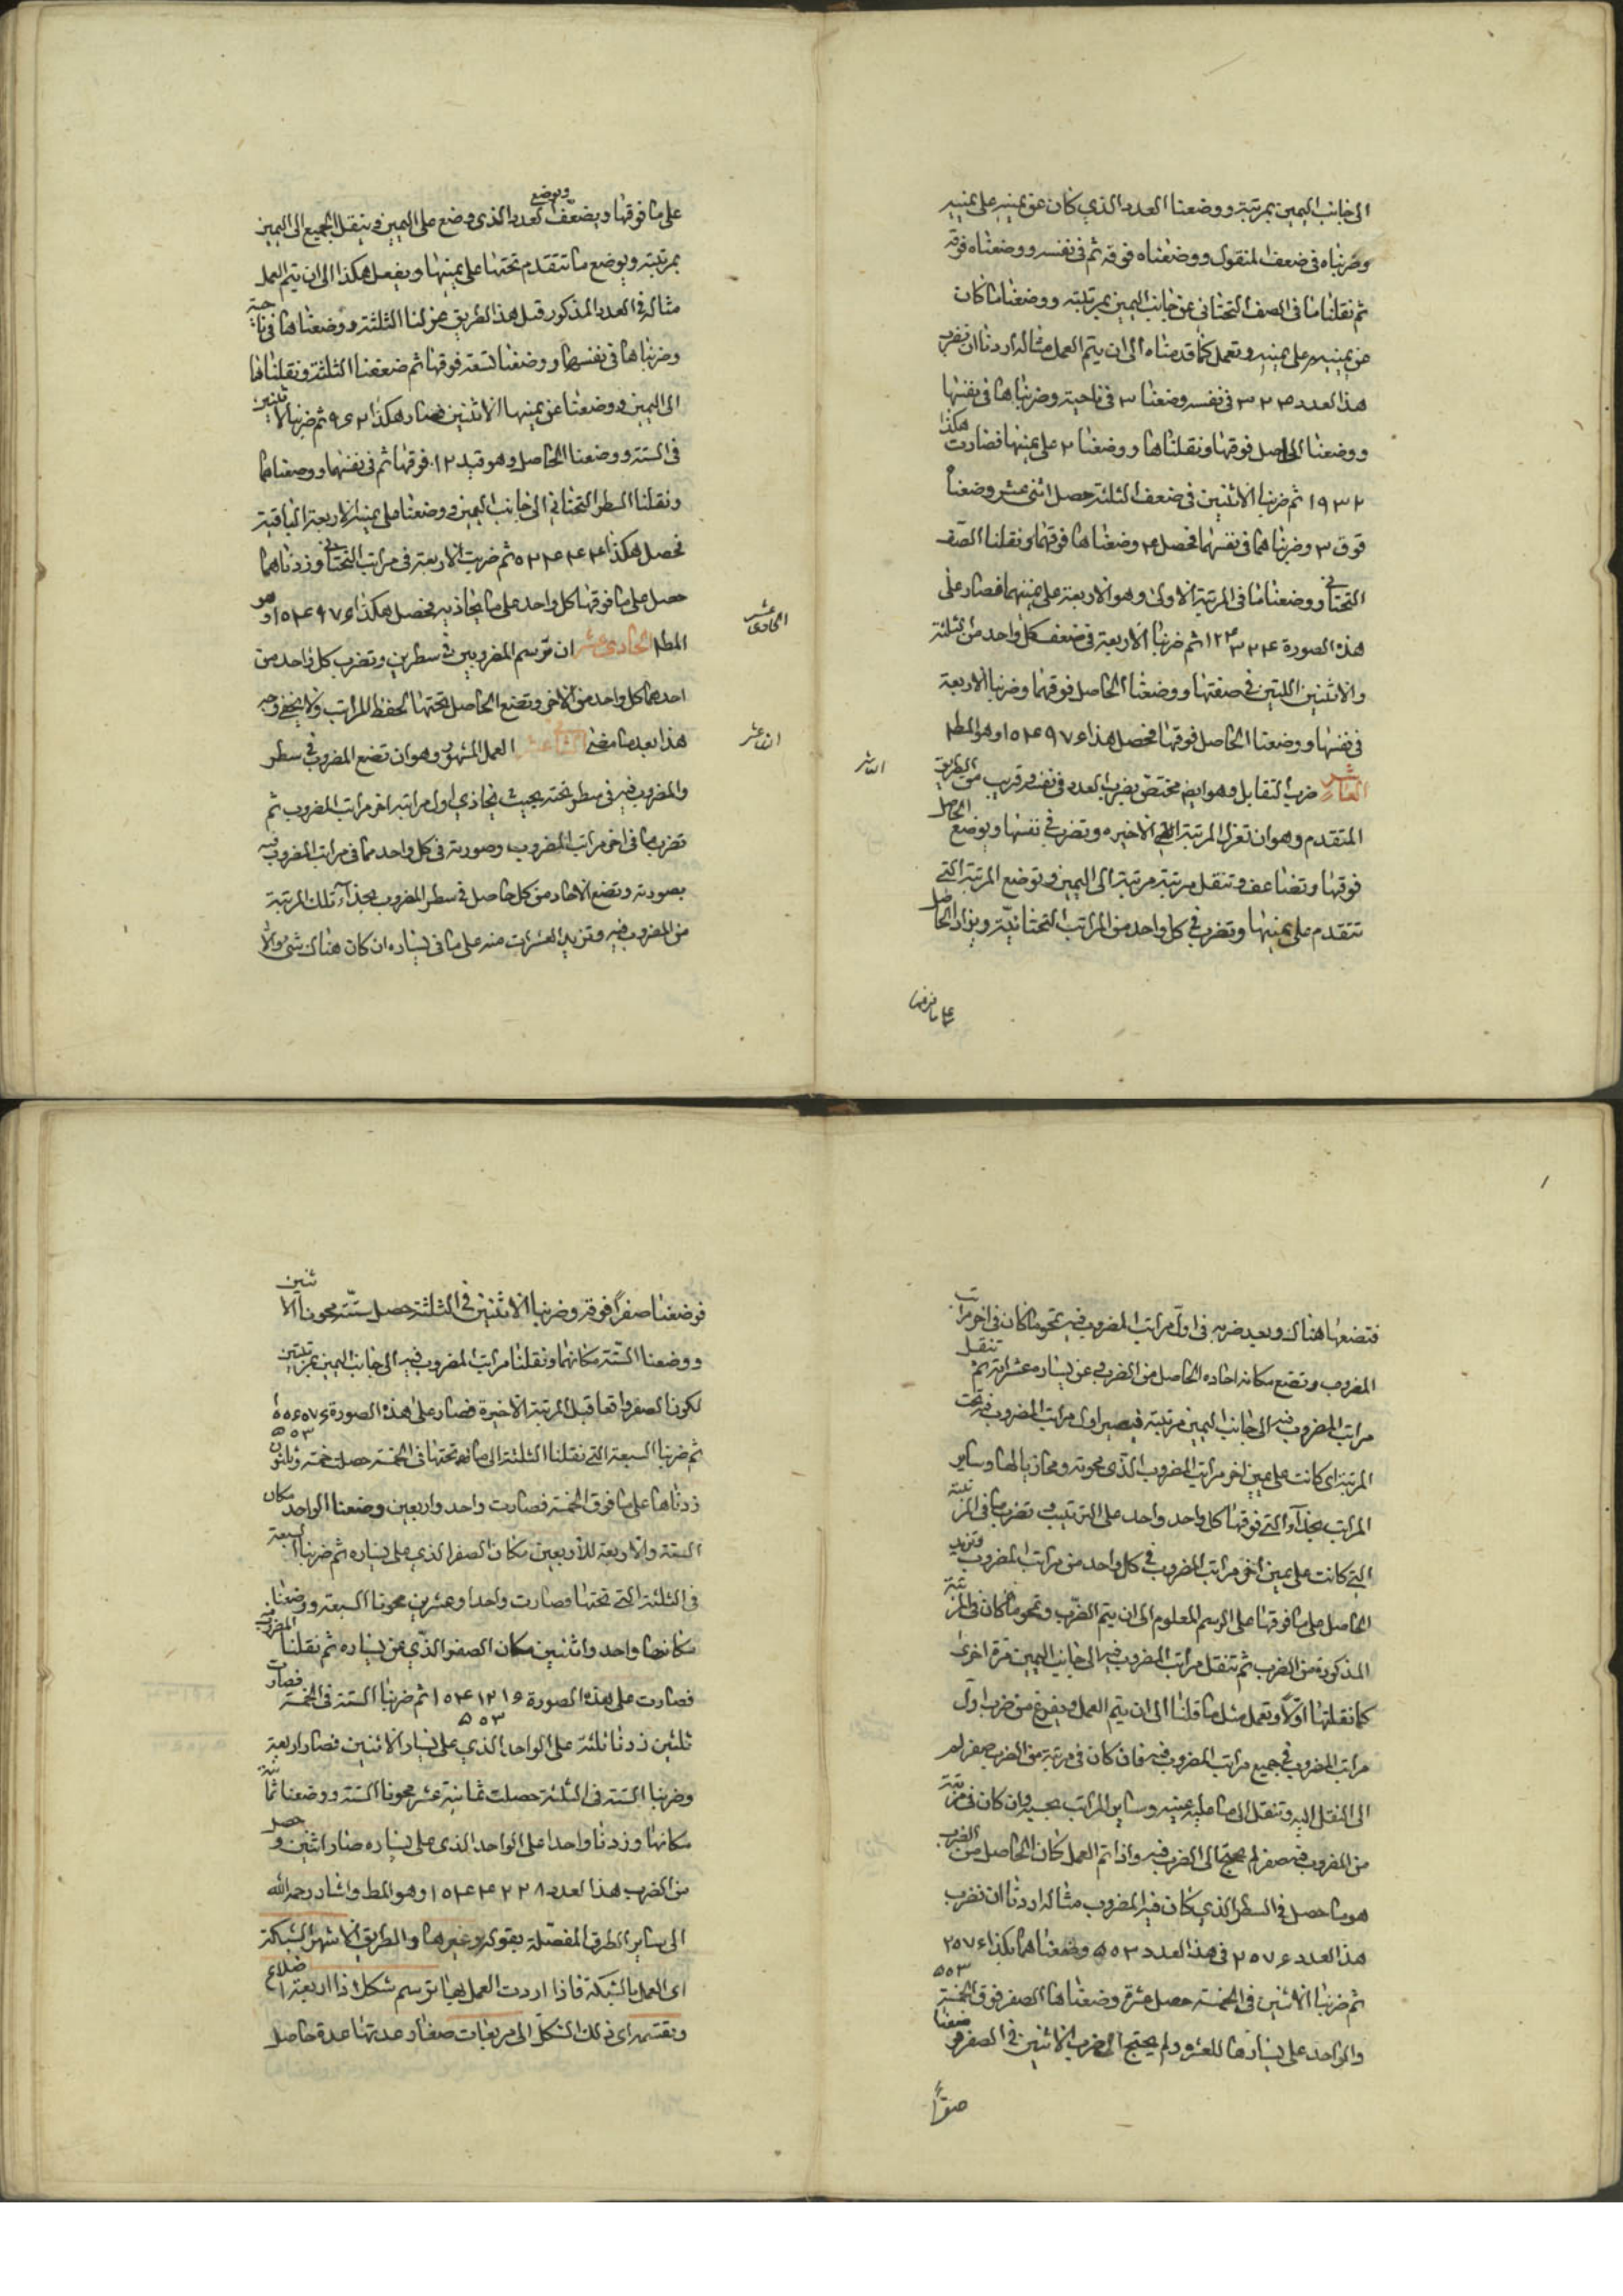 الى جانب اليمين بمرتبة ووضعنا العدد الذي كان عن يمينه على يمينه
وضربناه في ضعف المنقول ووضعناه فوقه ثم في نفسه ووضعناه فوقه
ثم نقلنا ما في الصف التحتاني عن جانب اليمين بمرتبة ووضعنا ما كان
عن يمينه على يمينه ونعمل كما قدمناه الى ان يتم العمل مثاله اردنا ان نضرب
هذا العدد ٣٢٤ في نفسه وضعنا ٣ في ناحية وضربناها في نفسها
ووضعنا الحاصل فوقها ونقلناها ووضعنا ٢ على يمينها فصارت هكذا
١٩٣٢ ثم ضربنا الاثنين في ضعف الثلثة حصل اثنى عشر وضعناه
فوق ٣ وضربناهما في نفسهما فحصل ٤ وضعناها فوقهما ونقلنا الصف
التحتاني ووضعنا ما في المرتبة الاولى وهو الاربعة على يمينهما فصار على
هذه الصورة ثم ضربنا الاربعة في ضعف كل واحد من الثلثة
والاثنين اللتين في صفتها ووضعنا الحاصل فوقهما وضربنا الاربعة
في نفسها ووضعنا الحاصل فوقها فحصل هذا ١٠٤٩٧٦ وهو المط
العاشر ضرب التقابل وهو ايضا مختص بضرب العدد في نفسه قريب من الطريق
العاشر
المتقدم وهو ان تعزل المرتبة الاخيره وتضرب في نفسها ويوضع الحاصل
فوقها وتضاعف وتنقل مرتبة مرتبة الى اليمين وتوضع المرتبة التي
تتقدم على يمينها وتضرب في كل واحد من المراتب التحتانية ويزاد الحاصل
على ما فوقها
على ما فوقها ويضعف العدد الذي وضع على اليمين وينقل الجميع الى اليمين
ويوضع
بمرتبة ويوضع ما تتقدم تحتها على يمينها ويفعل هكذا الى ان يتم العمل
مثاله في العدد المذكور قبل هذا الطريق عزلنا الثلثة ووضعناها في ناحية
وضربناها في نفسها ووضعنا تسعة فوقها ثم ضعفنا الثلثة ونقلناها
الى اليمين ووضعنا عن يمينها الاثنين فصار هكذا ثم ضربنا الاثنين
في الستة ووضعنا الحاصل وهو ١٢ فوقها ثم في نفسها ووضعناها
ونقلنا السطر التحتاني الى جانب اليمين ووضعنا على يمينه الاربعة الباقية
فحصل هكذا ثم ضربت الاربعة في مراتب التحتاني وزدناهما
حصل على ما فوقها كل واحد على ما يحاذيه فحصل هكذا ١٠٤٩٧٦ وهو
المط الحادي عشر ان ترسم المضروبين في سطرين وتضرب كل واحد من
الحادى عشر
احدهما كل واحد من الاخر وتضع الحاصل تحتها لحفظ المراتب ولا يخفى وجه
هذا بعد ما مضى الثاني عشر العمل المشهور وهو ان تضع المضروب في سطر
والمضروب فيه في سطر تحته بحيث يحاذي اول مراتبه اخر مراتب المضروب ثم
تضرب ما في اخر مراتب المضروب وصورته في كل واحد مما في مراتب المضروب فيه
بصورته وتضع الاحاد من كل حاصل في سطر المضروب بحذاء تلك المرتبة
من المضروب فيه وتزيد العشرات منه على ما في يساره ان كان هناك شئ والا
فتضعها هناك وبعد ضربه في اول مراتب المضروب فيه تمحو ما كان في اخر مراتب
المضروب وتضع مكانه احاد الحاصل من الضرب وعن يساره عشراته ثم تنقل
مراتب المضروب فيه الى جانب اليمين مرتبة فيصير اول مراتب المضروب فيه تحت
المرتبة اى كانت على يمين اخر مراتب المضروب الذي محوته ومحاذيا لها وساير
المراتب بحذاء التي فوقها كل واحد واحد على الترتيب وتضرب ما في المرتبة
التي كانت على يمين اخر مراتب المضروب في كل واحد من مراتب المضروب فتزيد
الحاصل على ما فوقها على الرسم المعلوم الى ان يتم الضرب وتمحو ما كان في المرتبة
المذكورة من الضرب ثم تنقل مراتب المضروب فيه الى جانب اليمين مرة اخرى
كما نقلتها اولا وتعمل مثل ما قلنا الى ان يتم العمل ويفرغ من ضرب اول
مراتب المضروب في جميع مراتب المضروب فيه فان كان في مرتبة من المضروب صفر لم
الى النقل اليه وتنقل الى ما على يمينه وساير المراتب بحسبه وان كان في مرتبة
من المضروب فيه صفر لم يحتج الى الضرب فيه واذا تم العمل كان الحاصل من الضرب
هو ما حصل في السطر الذي كان فيه المضروب مثاله اردنا ان نضرب
هذا العدد ٢٥٧٦ في هذا العدد ٥٠٣ وضعناهما هكذا ٢٥٧٦
٥٠٣
ثم ضربنا الاثنين في الخمسة حصل عشرة وضعناها الصفر فوق الخمسة
والواحد على يسارها للعشر ولم يحتج الى ضرب الاثنين في الصفر
صفرا
فوضعنا صفرا فوقه وضربنا الاثنين في الثلثة حصل ستة محونا الاثنين
ووضعنا الستة مكانها ونقلنا مراتب المضروب فيه الى جانب اليمين بمرتبتين
لكون الصفر واقعا قبل المرتبة الاخيرة فصار على هذه الصورة
٥٠٣
ثم ضربنا السبعة التي نقلنا الثلثة الى ما تحتها في الخمسة حصلت خمسة وثلثون
زدناها على ما فوق الخمسة فصارت واحد واربعين وضعنا الواحد مكان
الستة والاربعة للاربعين مكان الصفر الذي على يساره ثم ضربنا السبعة
في الثلثة التي تحتها فصارت واحدا وعشرين محونا السبعة ووضعنا
مكانها واحد واثنين مكان الصفر الذي عن يساره ثم نقلنا المضروب فيه
فصارت على هذه الصورة ثم ضربنا الستة في الخمسة فصارت
٥٠٣
ثلثين زدنا ثلثة على الواحد الذي على يسار الاثنين فصار اربعة
وضربنا الستة في الثلثة حصلت ثمانية عشر محونا الستة ووضعنا ثمانية
مكانها وزدنا واحدا على الواحد الذي على يساره صار اثنين وحصل
من الضرب هذا العدد وهو المط واشار رحمه الله
الى ساير الطرق المفصلة بقوله وغيرها والطريق الاشهر الشبكة
اى العمل بالشبكة فاذا اردت العمل بها ترسم شكلا ذا اربعة اضلاع
وتقسمه اى ذلك الشكل الى مربعات صغار عدتها عدة حاصل